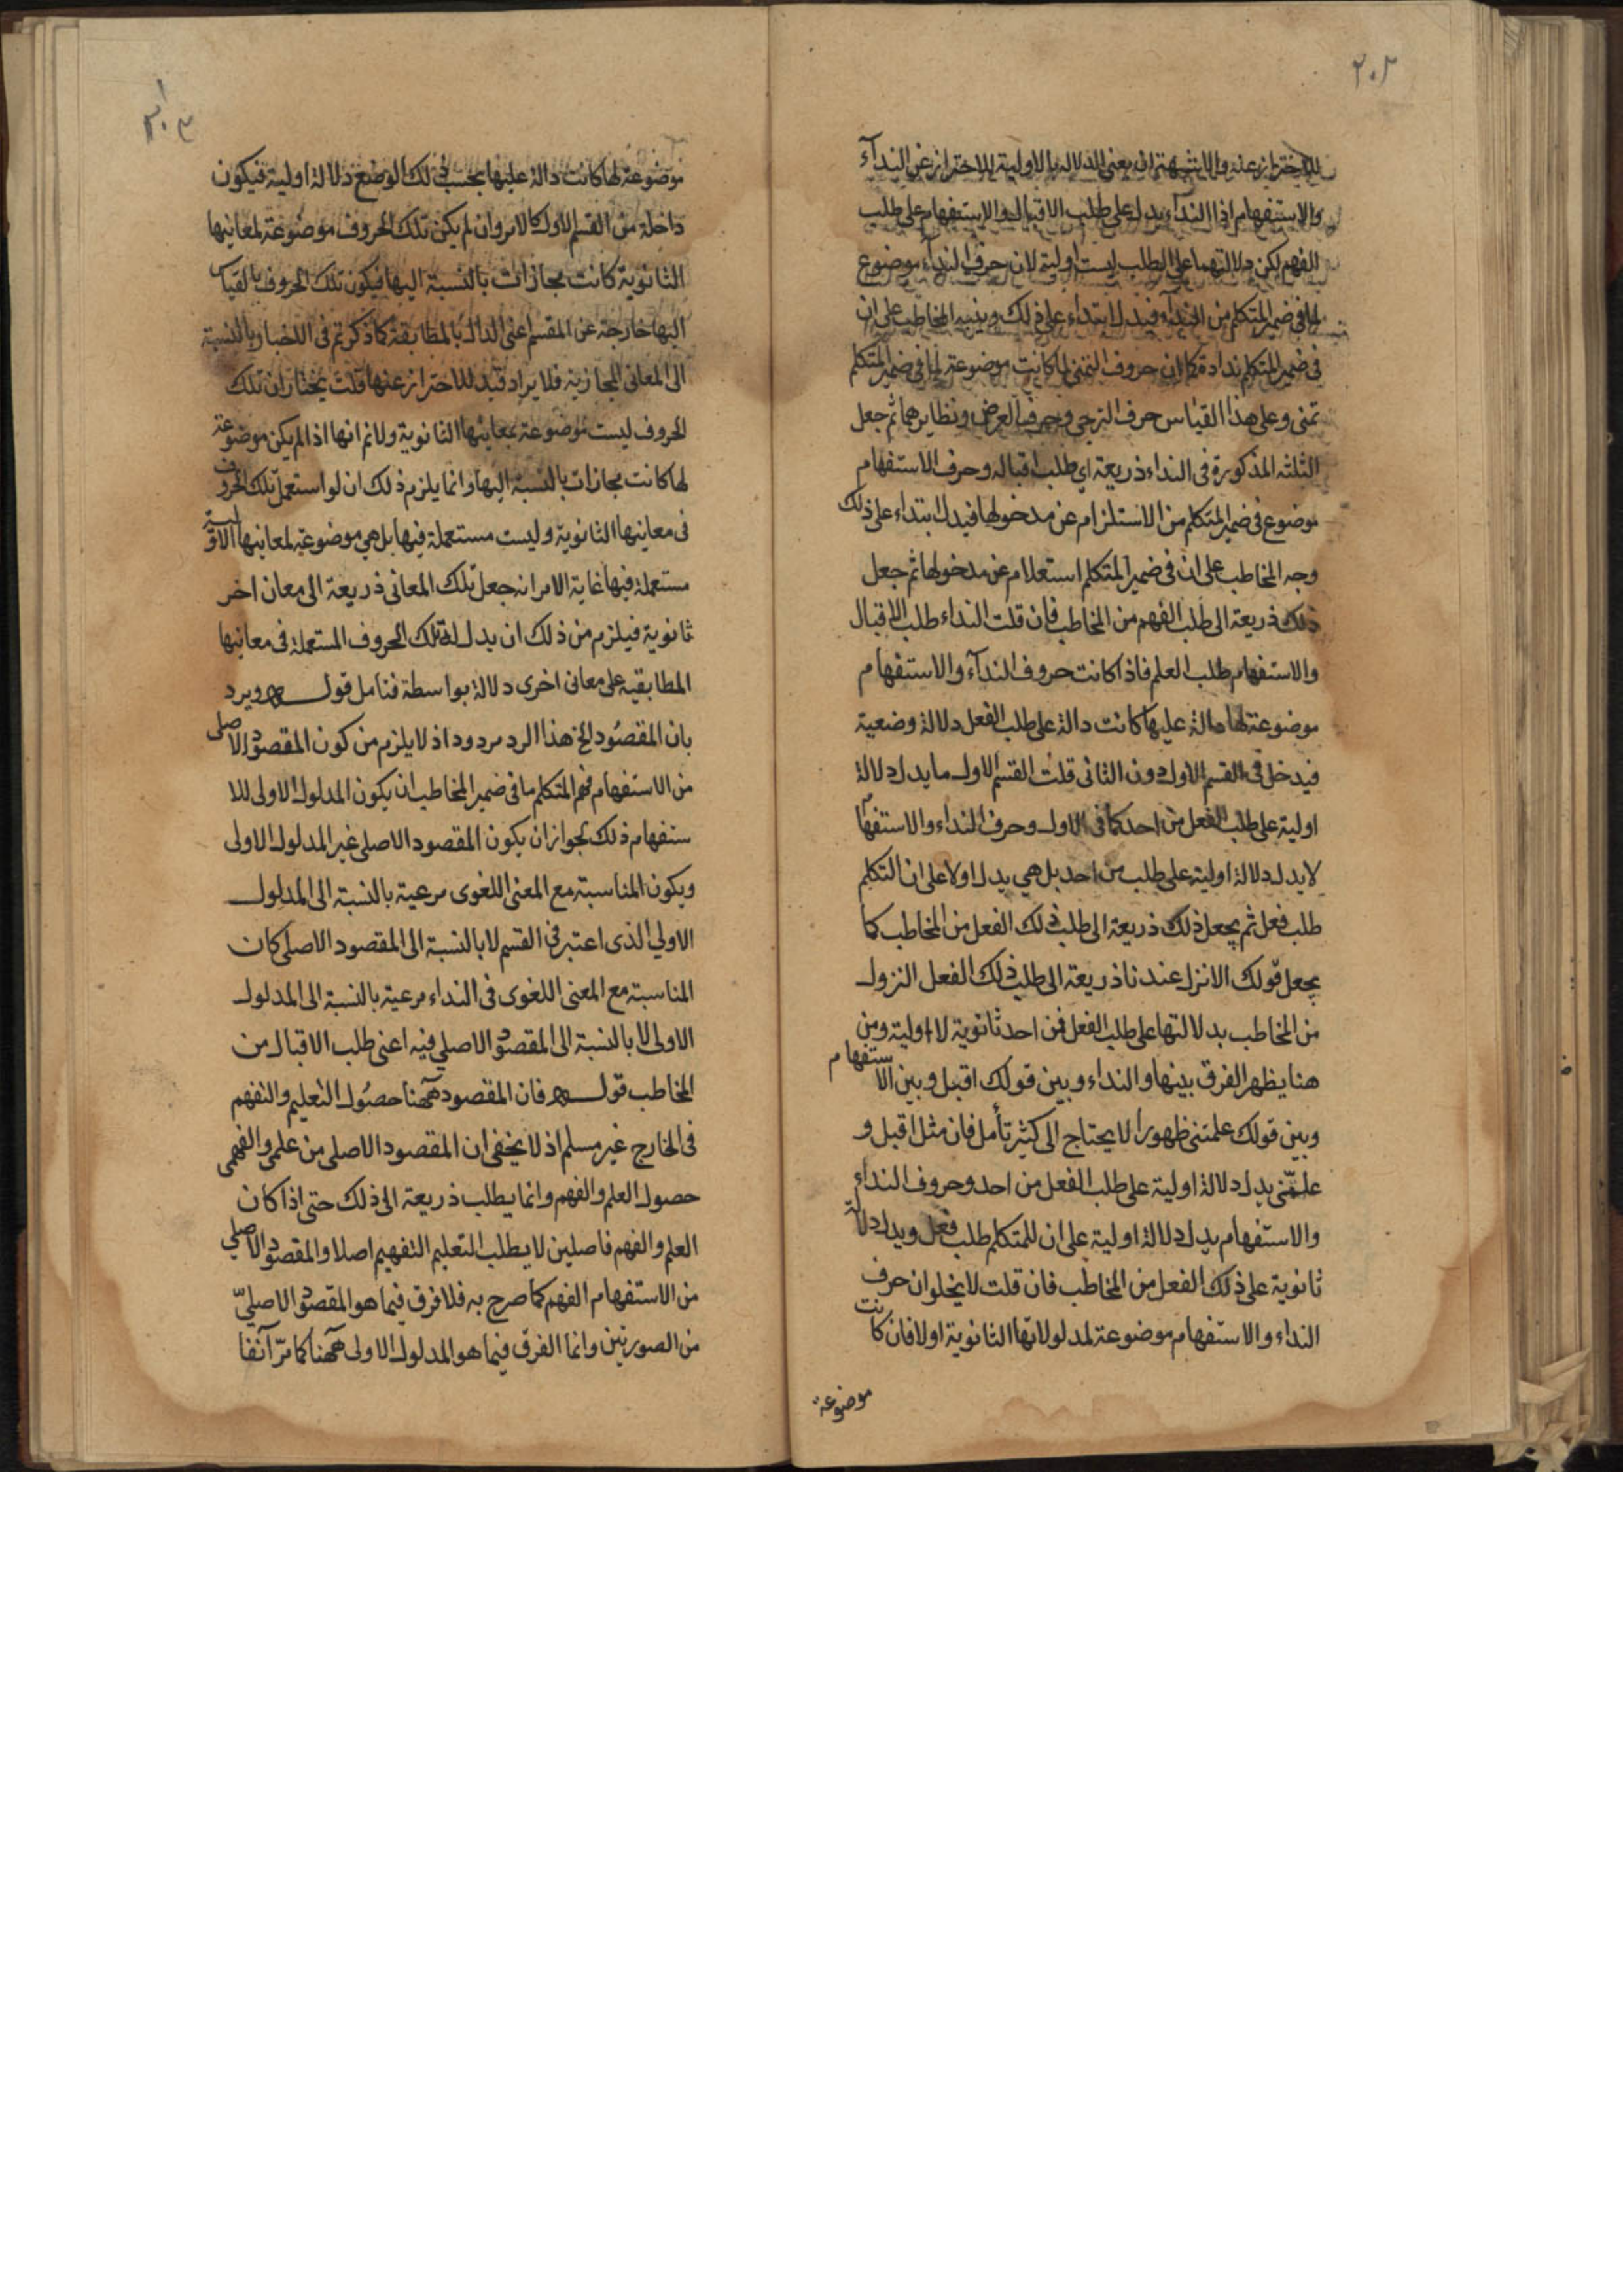 ٢٠٢
للاحتراز عنه والا يثبتهة ان يعنى الدلالة بالاولية للاحتراز عن النداء
والاستفهام اذا النداء يدل على طلب الاقبال والاستفهام على طلب
الفهم لكن دلالتهما على الطلب ليست اولية لان حرف النداء موضوع
لما فى ضمير المتكلم من النداء فيدل ابتداء على ذلك وينبه المخاطب على ان
فى ضمير المتكلم نداءه كما ان حروف التمنى لما كانت موضوعة لما فى ضمير المتكلم
تمنى وعلى هذا القياس حرف الترجى وحرف العرض ونظايرهما ثم جعل
الثلثه المذكورة فى النداء ذريعة اى طلب اقباله وحرف الاستفهام
موضوع فى ضمير المتكلم من الاستلزام عن مدخولها فيدل ابتداء على ذلك
وجه المخاطب على ان فى ضمير المتكلم استعلام عن مدخولها ثم جعل
ذلك ذريعة الى طلب الفهم من المخاطب فان قلت النداء طلب الاقبال
والاستفهام طلب العلم فاذا كانت حروف النداء والاستفهام
موضوعة لها دالة عليها كانت دالة على طلب الفعل دلالة وضعية
فيدخل فى القسم الاول دون الثانى قلت القسم الاول ما يدل دلالة
اولية على طلب الفعل من احد كما فى الاول وحرف النداء والاستفهام
لا يدل دلالة اولية على طلب من احد بل هى يدل اولا على ان التكلم
طلب فعل ثم يجعل ذلك ذريعة الى طلب ذلك الفعل من المخاطب كما
يجعل قولك الا تنزل عندنا ذريعة الى طلب ذلك الفعل النزول
من المخاطب بدلالتها على طلب الفعل فمن احد ثانوية لا اولية ومن
هنا يظهر الفرق بينها والنداء وبين قولك اقبل وبين الاستفهام
وبين قولك علمتنى ظهورا لا يحتاج الى كثير تأمل فان مثل اقبل و
علمنى يدل دلالة اولية على طلب الفعل من احد وحروف النداء
والاستفهام يدل دلالة اولية على ان للمتكلم طلب فعل ويدل دلالة
ثانوية على ذلك الفعل من المخاطب فان قلت لا يخلو ان حرف
النداء والاستفهام موضوعة لمدلولاتها الثانوية اولا فان كانت
موضوعة
موضوعة لها كانت دالة عليها بحسب ذلك الوضع دلالة اولية فيكون
داخلة من القسم الاول كالامر وان لم يكن تلك الحروف موضوعة لمعانيها
الثانوية كانت مجازات بالنسبة اليها فيكون تلك الحروف بالقياس
اليها خارجة عن المقسم اعنى الدال بالمطابقة كما ذكرتم فى الاخبار بالنسبة
الى المعانى المجازية فلا يراد قيد للاحتراز عنها قلت يختار ان تلك
الحروف ليست موضوعة بمعاينها الثانوية ولانم انها اذا لم يكن موضوعة
لها كانت مجازات بالنسبة اليها وانما يلزم ذلك ان لو استعمل تلك الحروف
فى معاينها الثانوية وليست مستعملة فيها بل هى موضوعة لمعاينها الاولية
مستعملة فيها غاية الامر انه جعل تلك المعانى ذريعة الى معان اخر
ثانوية فيلزم من ذلك ان يدل لك تلك الحروف المستعملة فى معانيها
المطابقيه على معانى اخرى دلالة بواسطة فتامل قوله ويرد
بان المقصود الخ هذا الرد مردود اذ لا يلزم من كون المقصود الاصلى
من الاستفهام فهم المتكلم ما فى ضمير المخاطب ان يكون المدلول الاولى للا
ستفهام ذلك بجواز ان يكون المقصود الاصلى غير المدلول الاولى
ويكون المناسبة مع المعنى اللغوى مرعية بالنسبة الى المدلول
الاولى الذى اعتبر فى القسم لا بالنسبة الى المقصود الاصلى كان
المناسبة مع المعنى اللغوى فى النداء مرعية بالنسبة الى المدلول
الاولى لا بالنسبة الى المقصود الاصلى فيه اعنى طلب الاقبال من
المخاطب قوله فان المقصود ههنا حصول التعليم والتفهم
فى الخارج غير مسلم اذ لا يخفى ان المقصود الاصلى من علمى والفهمى
حصول العلم والفهم وانما يطلب ذريعة الى ذلك حتى اذا كان
العلم والفهم فاصلين لا يطلب التعليم التفهيم اصلا والمقصود الاصلى
من الاستفهام الفهم كما صرح به فلا فرق فيما هو المقصود الاصلىّ
من الصورتين وانما الفرق فيما هو المدلول الاولى ههنا كما مرّ آنفا